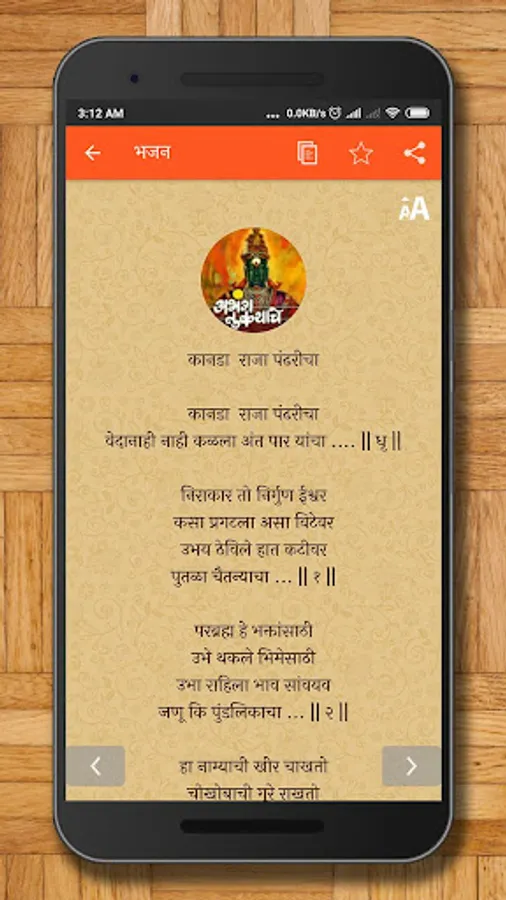 3:12 AM
... 0.0KB/s
भजन
AA
अभंग
तुकयाचे
कानडा राजा पंढरीचा
कानडा राजा पंढरीचा
वेदानाही नाही कळला अंत पार यांचा .... || धृ ||
निराकार तो निर्गुण ईश्वर
कसा प्रगटला असा विटेवर
उभय ठेविले हात कटीवर
पुतळा चैतन्याचा ... || १ ||
परब्रह्म हे भक्तांसाठी
उभे थकले भिमेसाठी
उभा राहिला भाव सांवयव
जणू कि पुंडलिकाचा ... || २ ||
हा नाम्याची खीर चाखतो
चोखोबाची गुरे राखतो